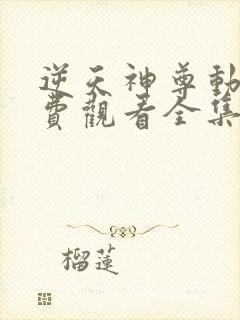 逆天神尊動
費觀看全集
榴蓮